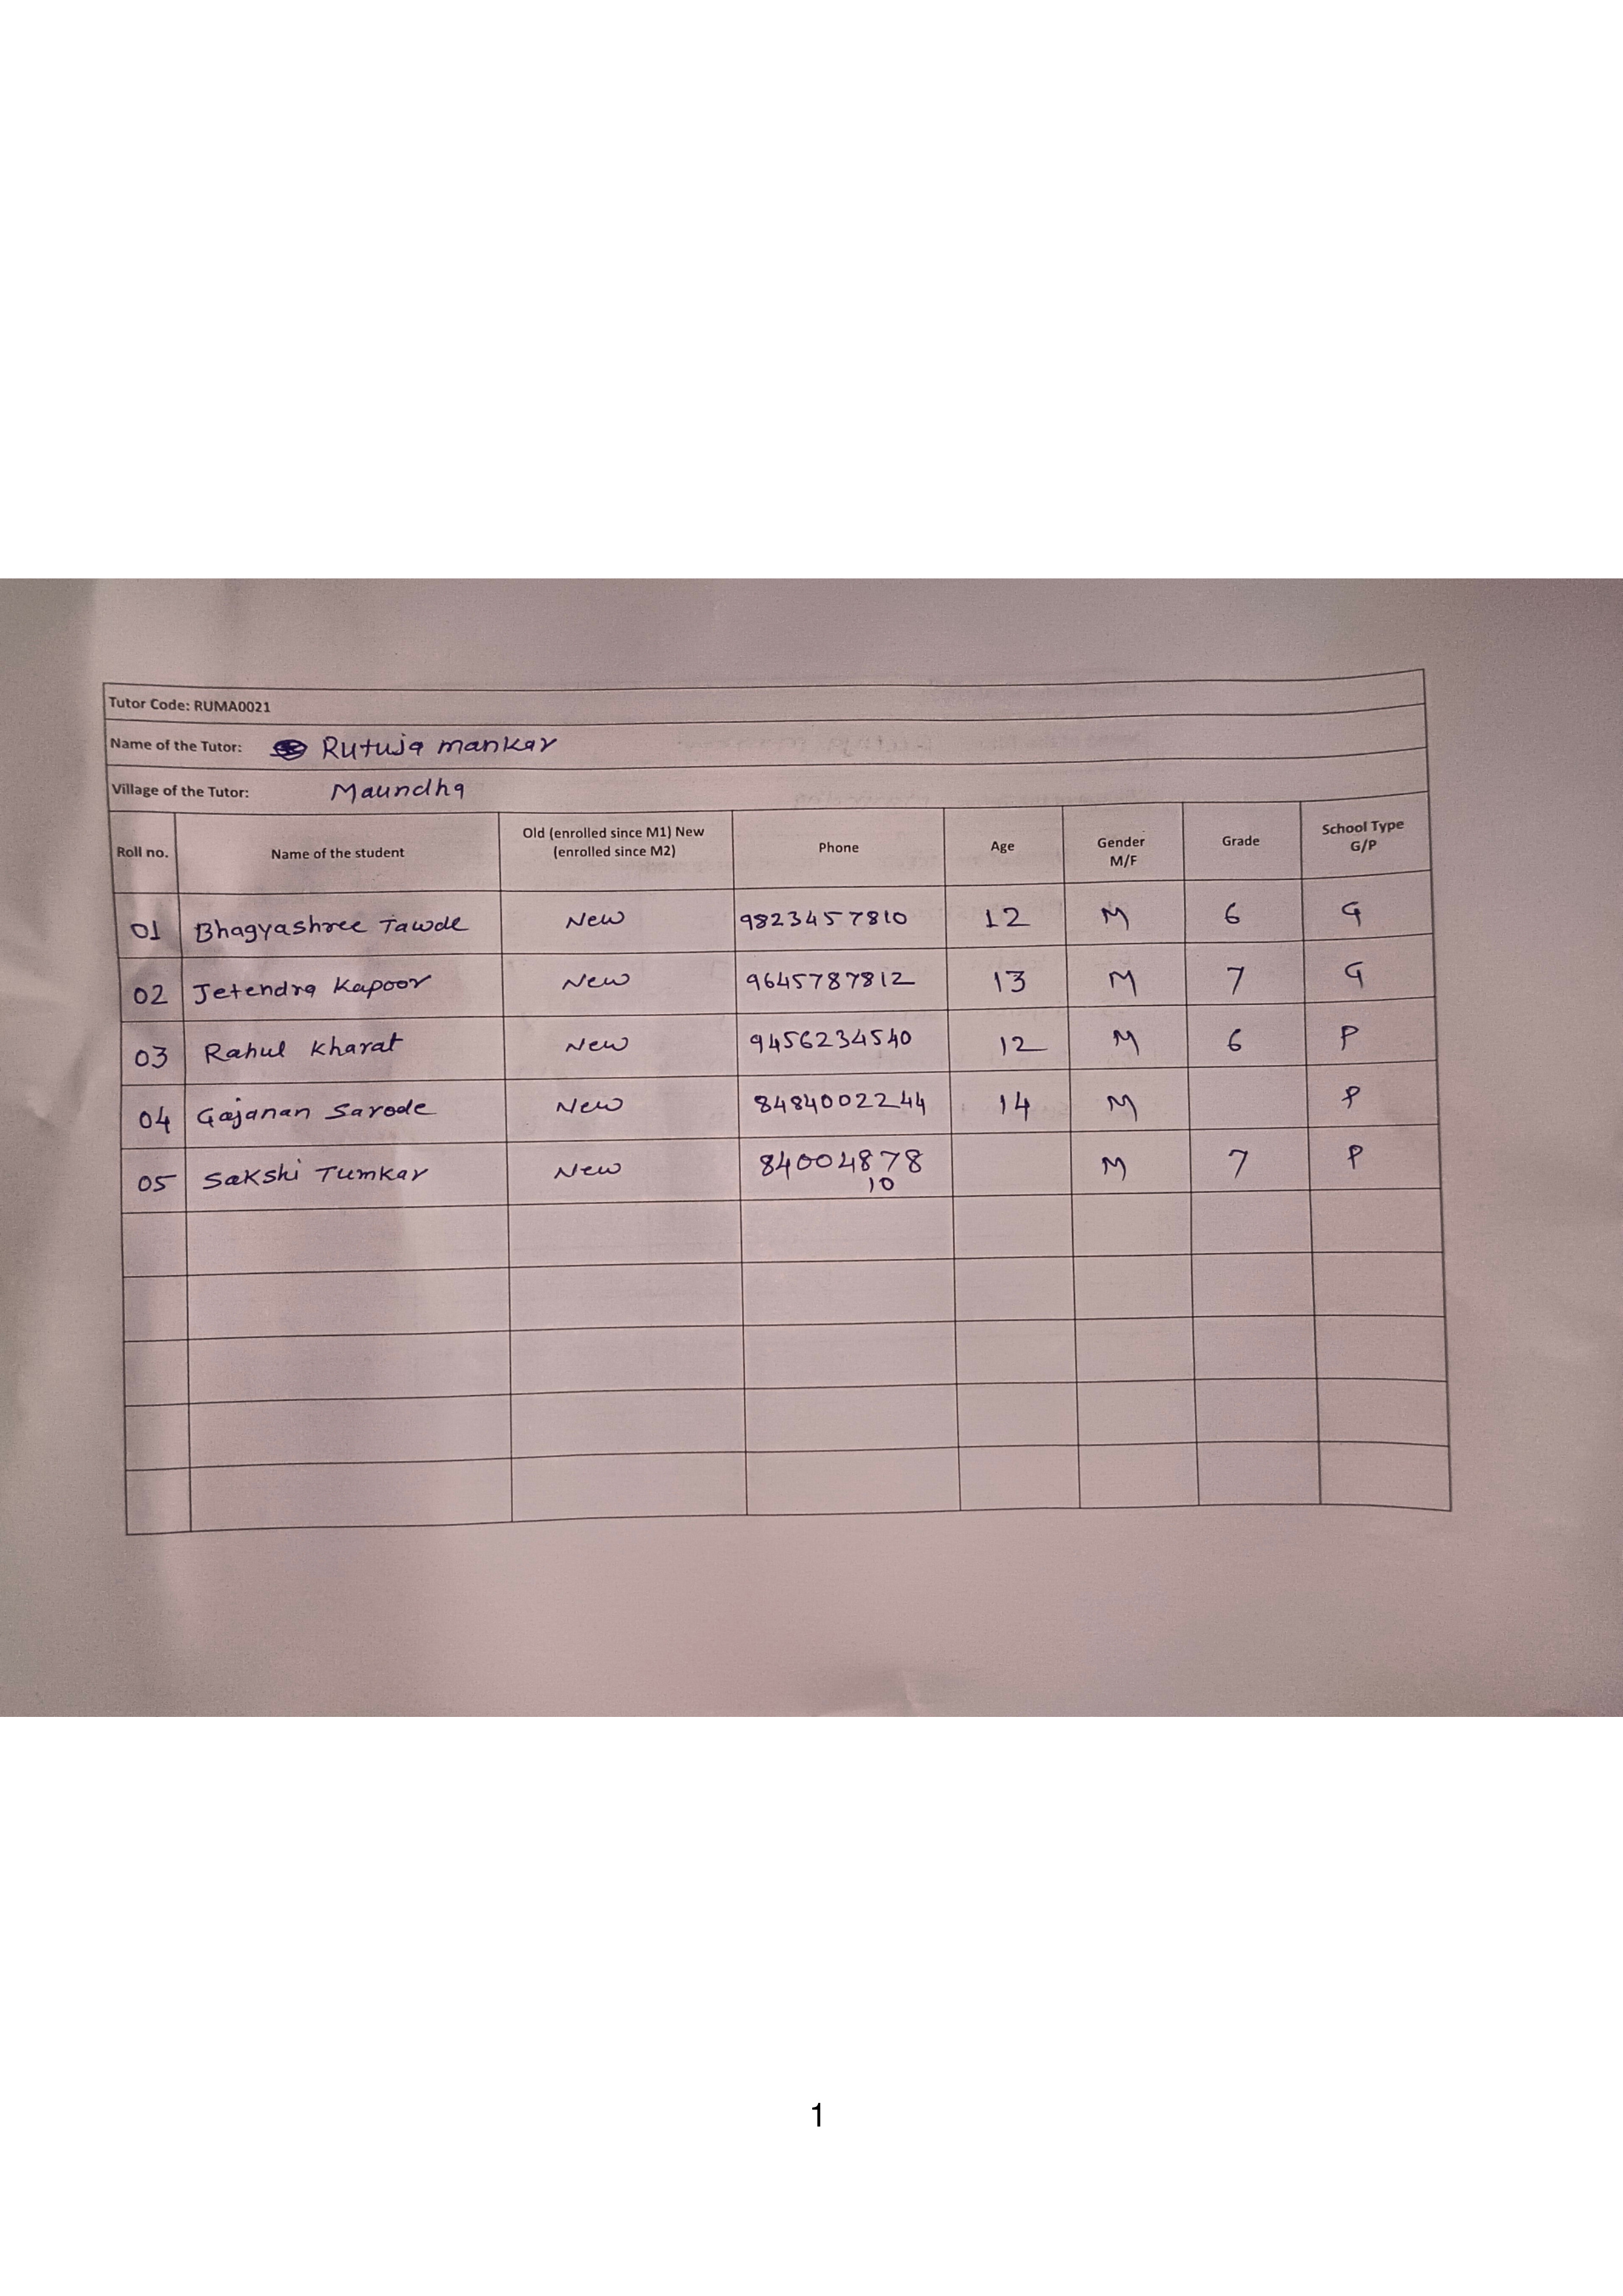 Tutor Code: RUMA0021
Name of the Tutor: Rutuja mankar
Village of the Tutor: Maundha
Roll no. Name of the student Old (enrolled since M1) New (enrolled since M2) Phone Age Gender M/F Grade School Type G/P
01 Bhagyashree Tawde New 9823457810 12 M 6 G
02 Jetendra Kapoor New 9645787812 13 M 7 G
03 Rahul Kharat New 9456234540 12 M 6 P
04 Gajanan Sarode New 8484002244 14 M P
05 Sakshi Tumkar New 84004878 M 7 P
10
1